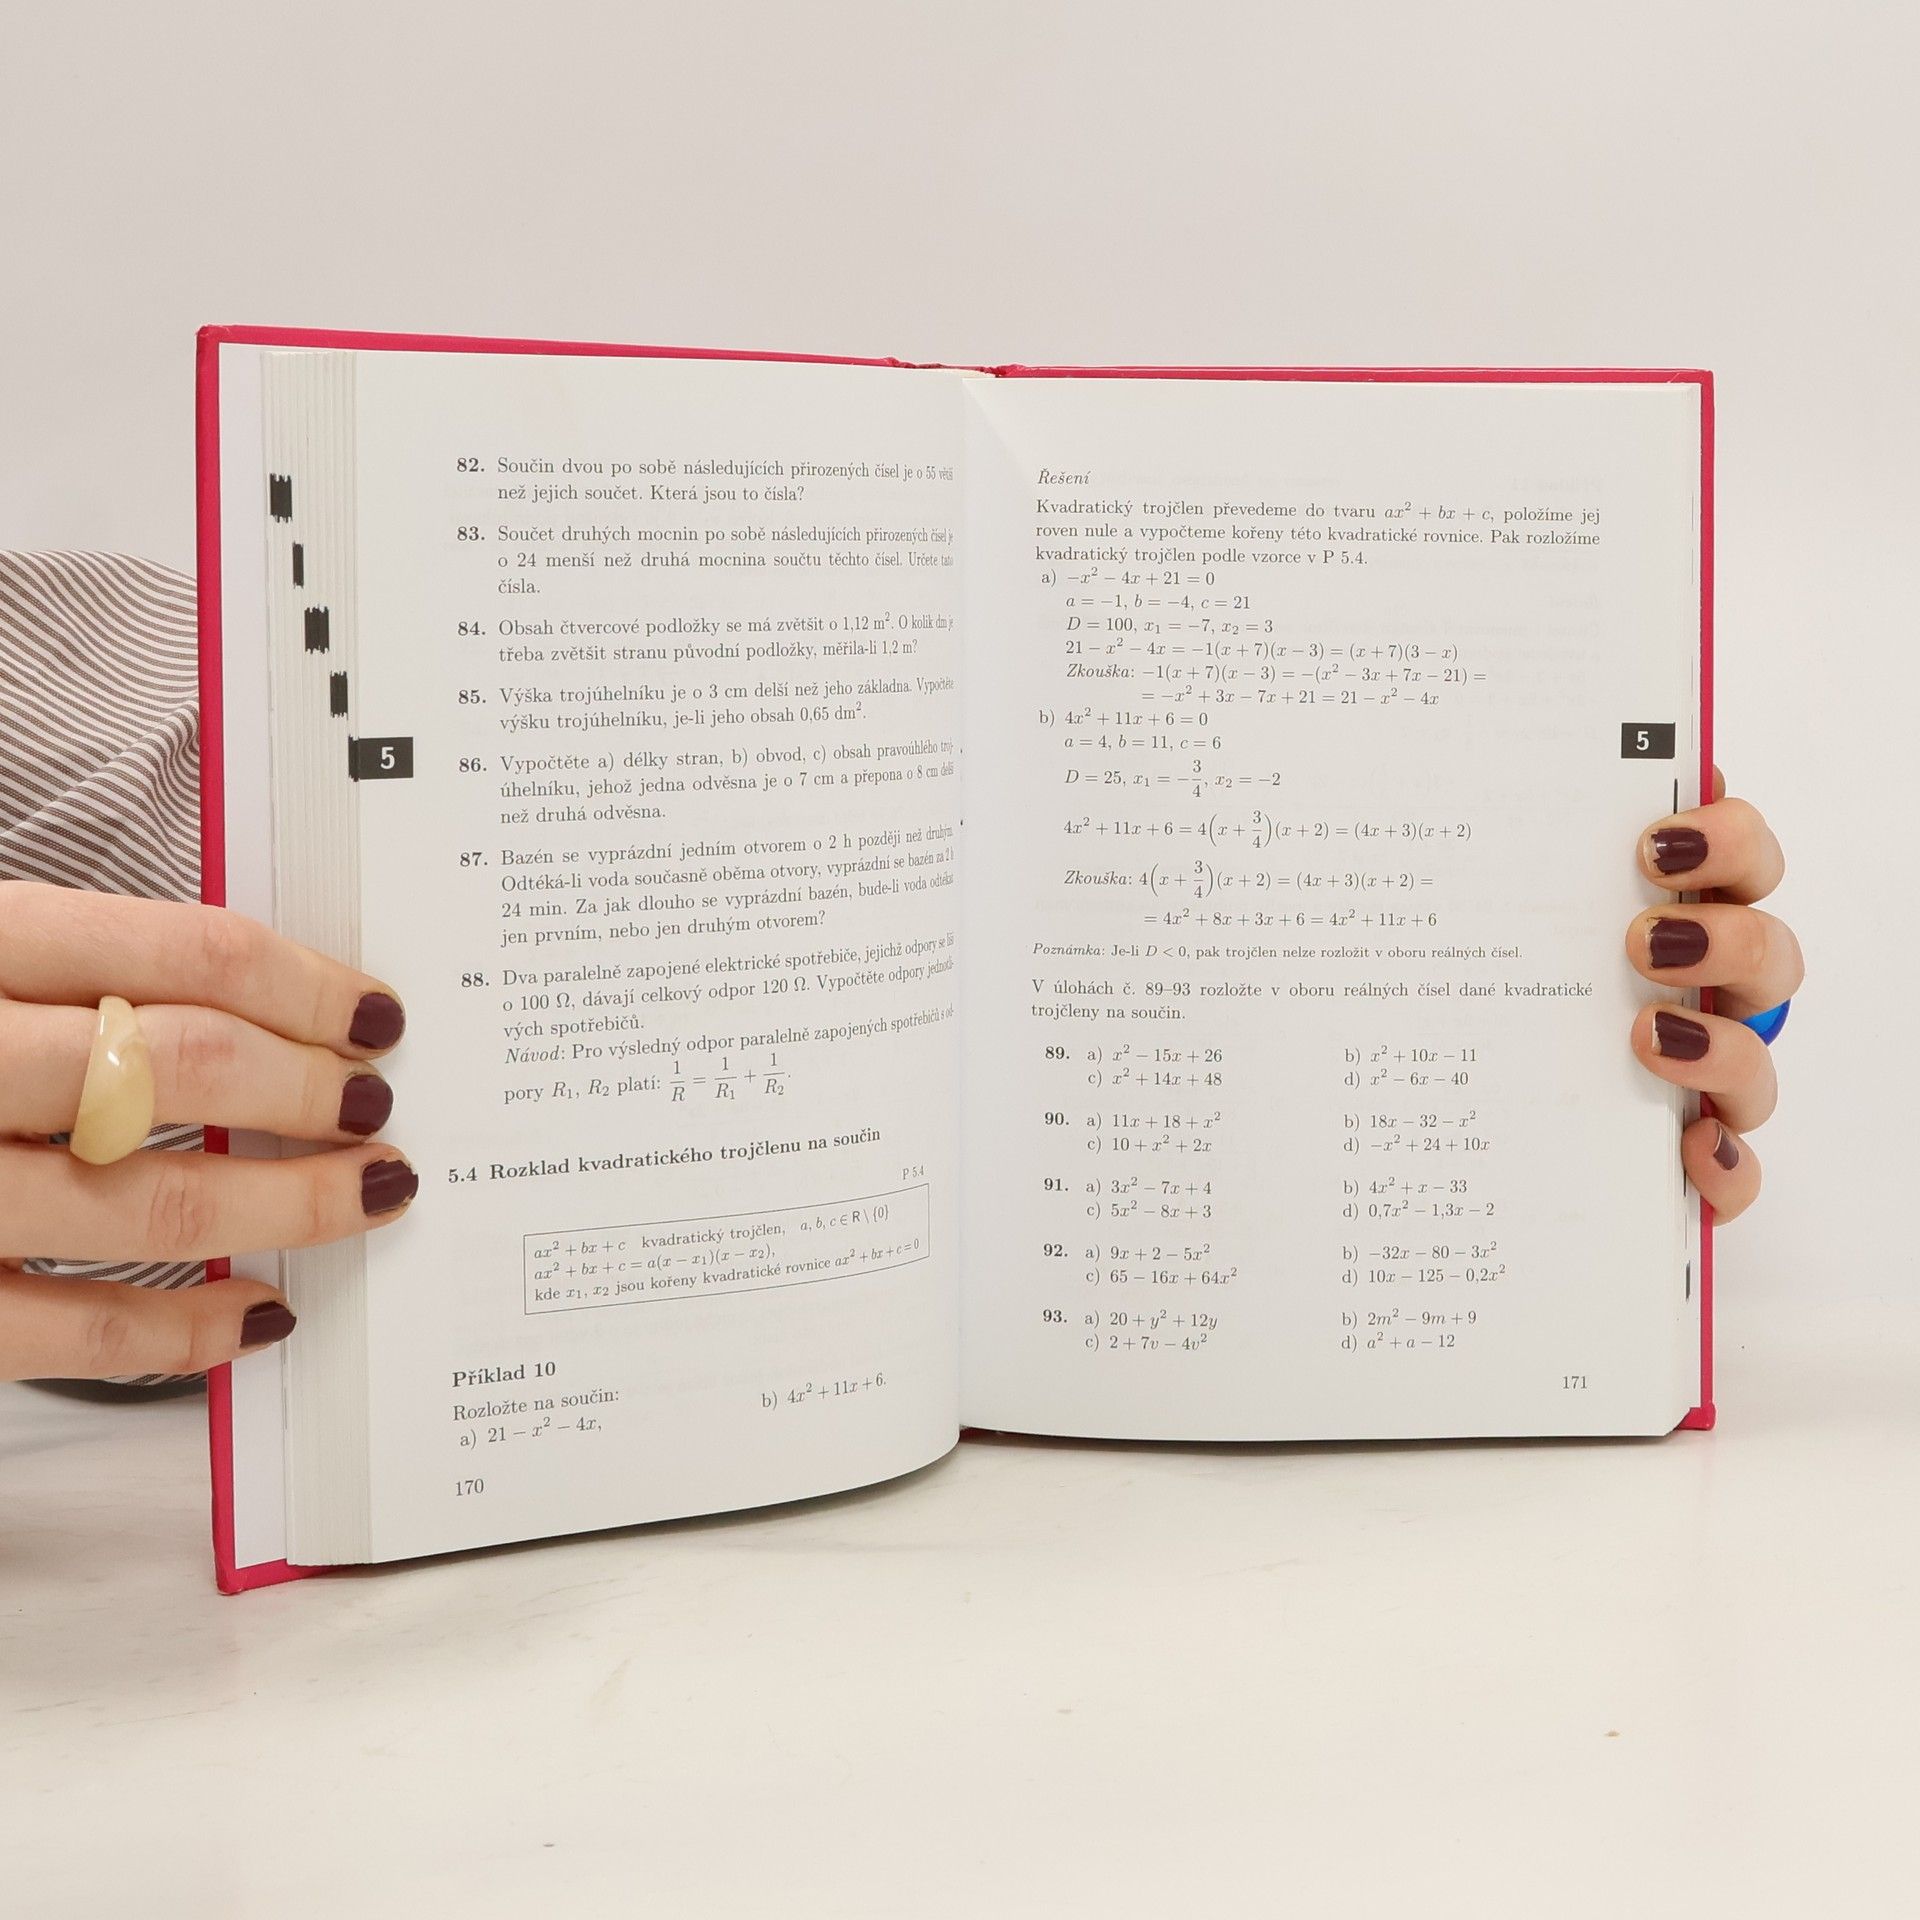 82. Součin dvou po sobě následujících přirozených čísel je o 55 větší
než jejich součet. Která jsou to čísla?
83. Součet druhých mocnin po sobě následujících přirozených čísel je
o 24 menší než druhá mocnina součtu těchto čísel. Určete tato
čísla.
84. Obsah čtvercové podložky se má zvětšit o 1,12 m². O kolik dm je
třeba zvětšit stranu původní podložky, měřila-li 1,2 m?
85. Výška trojúhelníku je o 3 cm delší než jeho základna. Vypočtěte
výšku trojúhelníku, je-li jeho obsah 0,65 dm².
5
86. Vypočtěte a) délky stran, b) obvod, c) obsah pravoúhlého troj-
úhelníku, jehož jedna odvěsna je o 7 cm a přepona o 8 cm delší
než druhá odvěsna.
87. Bazén se vyprázdní jedním otvorem o 2 h později než druhým.
Odtéká-li voda současně oběma otvory, vyprázdní se bazén za 2 h
24 min. Za jak dlouho se vyprázdní bazén, bude-li voda odtékat
jen prvním, nebo jen druhým otvorem?
88. Dva paralelně zapojené elektrické spotřebiče, jejichž odpory se liší
o 100 Ω, dávají celkový odpor 120 Ω. Vypočtěte odpory jednotli-
vých spotřebičů.
Návod: Pro výsledný odpor paralelně zapojených spotřebičů s od-
pory R₁, R₂ platí: 1/R = 1/R₁ + 1/R₂.
5.4 Rozklad kvadratického trojčlenu na součin
P 5.4
ax² + bx + c kvadratický trojčlen, a, b, c ∈ R \ {0}
ax² + bx + c = a(x − x₁)(x − x₂),
kde x₁, x₂ jsou kořeny kvadratické rovnice ax² + bx + c = 0
Příklad 10
Rozložte na součin:
a) 21 − x² − 4x, b) 4x² + 11x + 6.
170
Řešení
Kvadratický trojčlen převedeme do tvaru ax² + bx + c, položíme jej
roven nule a vypočteme kořeny této kvadratické rovnice. Pak rozložíme
kvadratický trojčlen podle vzorce v P 5.4.
a) −x² − 4x + 21 = 0
a = −1, b = −4, c = 21
D = 100, x₁ = −7, x₂ = 3
21 − x² − 4x = −1(x + 7)(x − 3) = (x + 7)(3 − x)
Zkouška: −1(x + 7)(x − 3) = −(x² − 3x + 7x − 21) =
= −x² + 3x − 7x + 21 = 21 − x² − 4x
b) 4x² + 11x + 6 = 0
a = 4, b = 11, c = 6
5
D = 25, x₁ = −3/4, x₂ = −2
4x² + 11x + 6 = 4(x + 3/4)(x + 2) = (4x + 3)(x + 2)
Zkouška: 4(x + 3/4)(x + 2) = (4x + 3)(x + 2) =
= 4x² + 8x + 3x + 6 = 4x² + 11x + 6
Poznámka: Je-li D < 0, pak trojčlen nelze rozložit v oboru reálných čísel.
V úlohách č. 89–93 rozložte v oboru reálných čísel dané kvadratické
trojčleny na součin.
89. a) x² − 15x + 26 b) x² + 10x − 11
c) x² + 14x + 48 d) x² − 6x − 40
90. a) 11x + 18 + x² b) 18x − 32 − x²
c) 10 + x² + 2x d) −x² + 24 + 10x
91. a) 3x² − 7x + 4 b) 4x² + x − 33
c) 5x² − 8x + 3 d) 0,7x² − 1,3x − 2
92. a) 9x + 2 − 5x² b) −32x − 80 − 3x²
c) 65 − 16x + 64x² d) 10x − 125 − 0,2x²
93. a) 20 + y² + 12y b) 2m² − 9m + 9
c) 2 + 7v − 4v² d) a² + a − 12
171